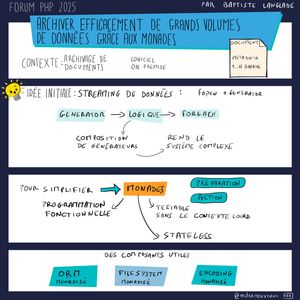 FORUM PHP 2025
PAR BAPTISTE LANGLADE
ARCHIVER EFFICACEMENT DE GRANDS VOLUMES
DE DONNÉES GRÂCE AUX MONADES
DOCUMENT
METADATA
1..N BINAIRE
CONTEXTE: ARCHIVAGE DE
DOCUMENTS
LOGICIEL
ON PREMISE
IDÉE INITIALE: STREAMING DE DONNÉES: FOPEN + GENERATOR
GENERATOR
LOGIQUE
FOREACH
COMPOSITION
DE GÉNÉRATEURS
REND LE
SYSTÈME COMPLEXE
POUR SIMPLIFIER
MONADES
PRÉPARATION
ACTION
PROGRAMMATION
FONCTIONNELLE
TESTABLE
SANS LE CONTEXTE LOURD
STATELESS
DES COMPOSANTS UTILES
ORM
MONADISÉ
FILESYSTEM
MONADISÉ
ENCODING
MONADISÉ